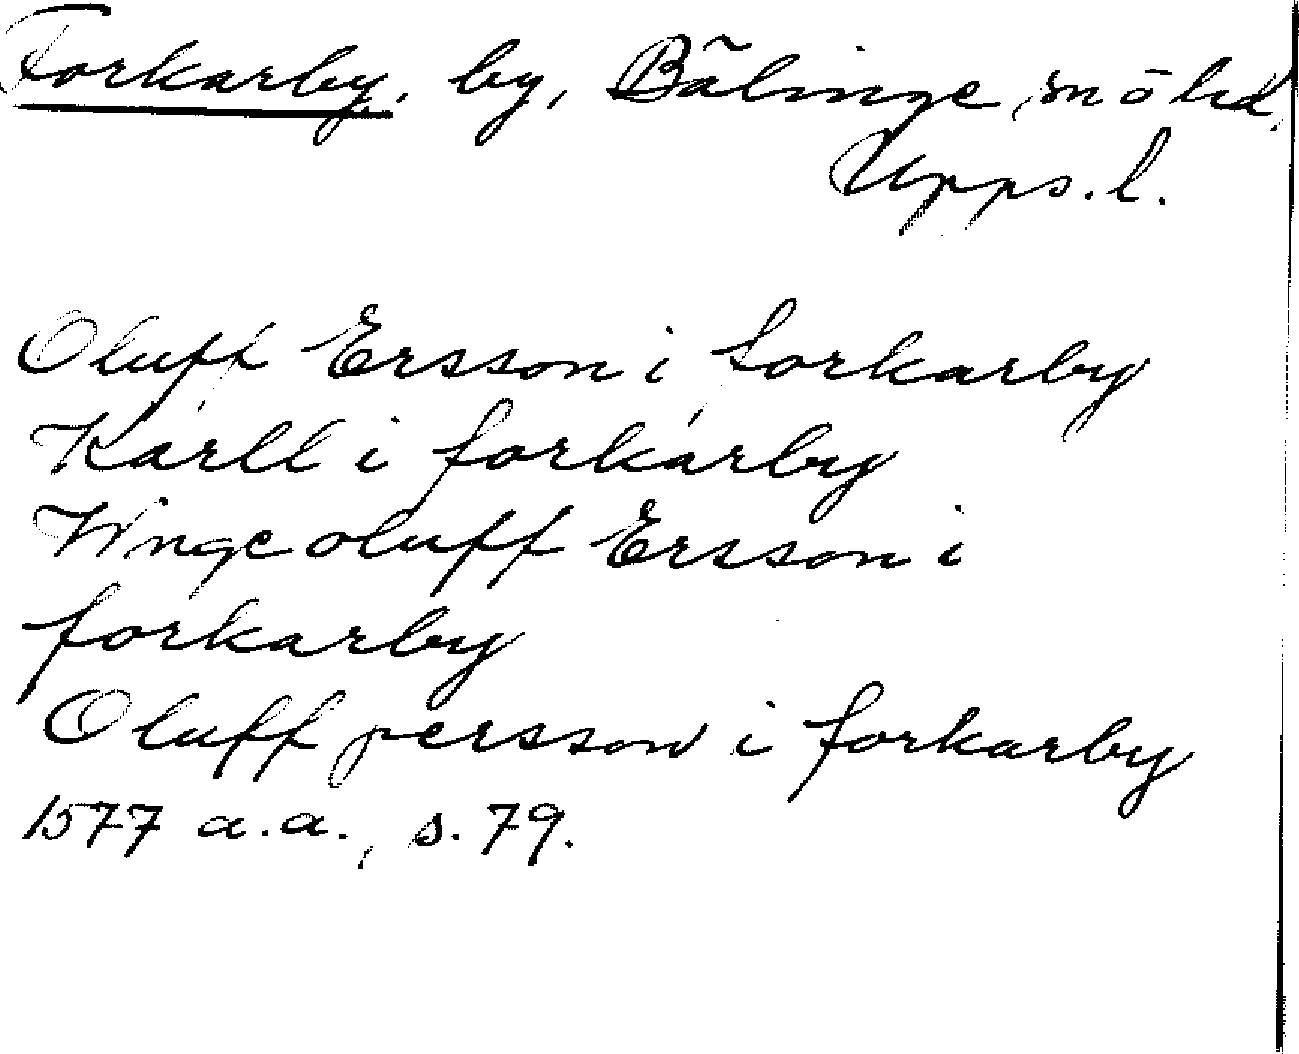 Forkarby, by, Bälinge sn ō hd.
Upps. l.
Oluff Ersson i forkarby
Karll i forkarby
Vinge oluff Ersson i
forkarby
Oluff persson i forkarby
1577 a.a., s. 79.